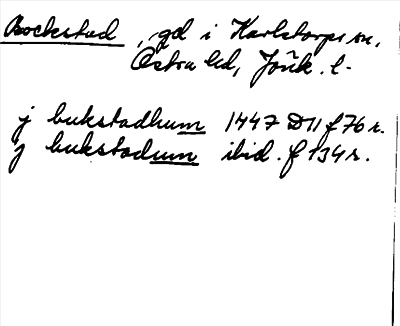 Bockstad, gd i Karlstorps sn,
Östra hd, Jönk. l.
j bukstadhum 1447 D11 f 76 r.
j bukstadum ibid. f 134 r.